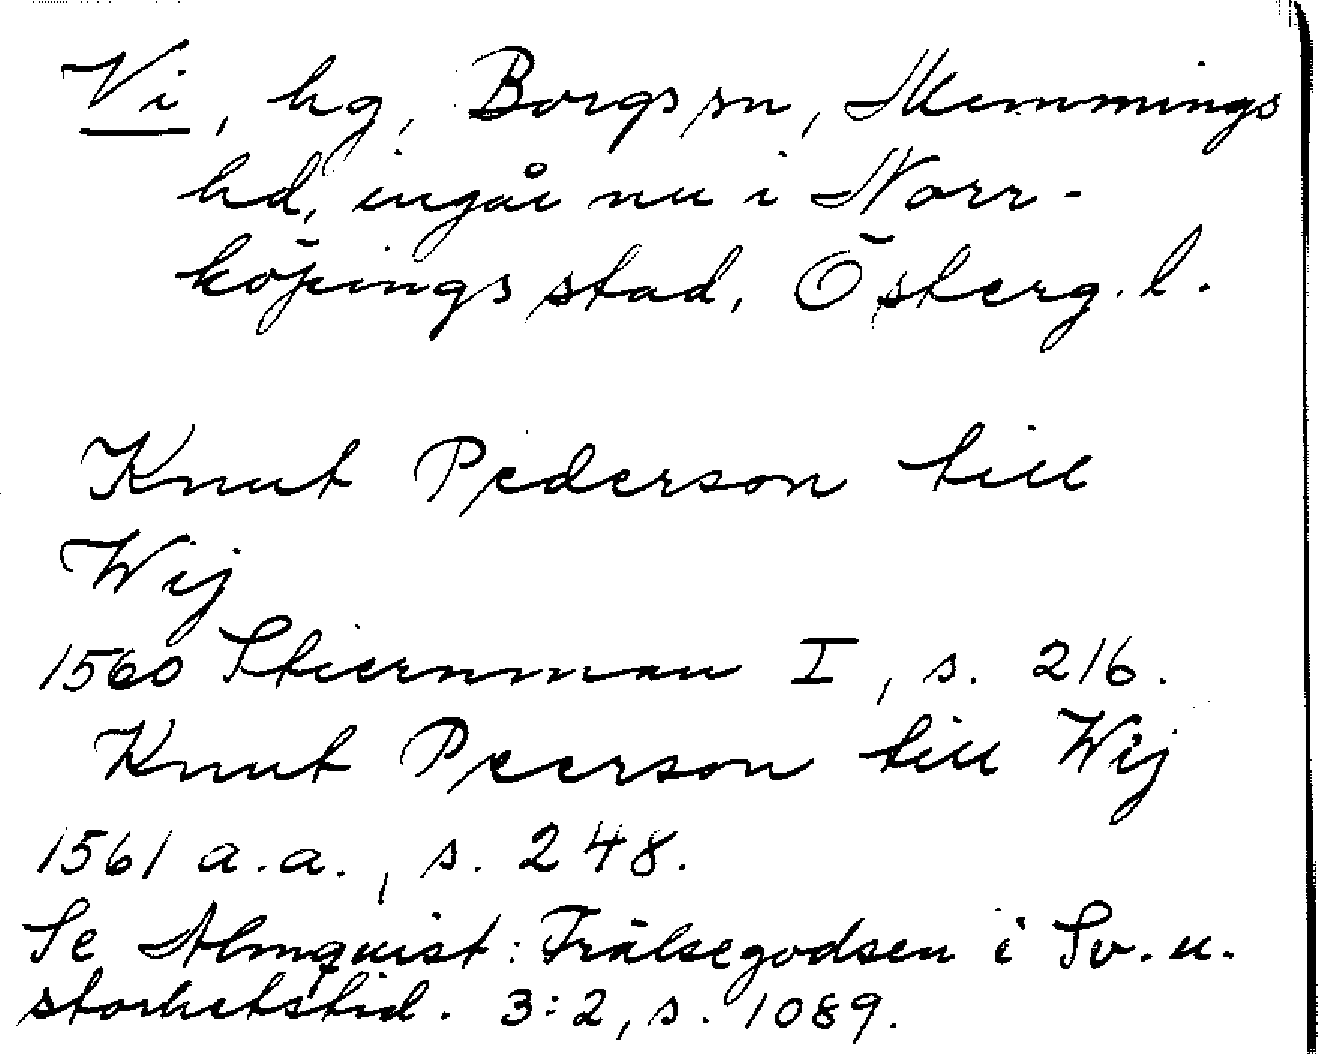 Vi, hg, Borgs sn, Memmings
hd, ingår nu i Norr-
köpings stad, Österg. l.
Knut Pederson till
Wij
1560 Stiernman I, s. 216.
Knut Peerson till Wij
1561 a.a., s. 248.
Se Almquist: Frälsegodsen i Sv. u.
storhetstid. 3:2, s. 1089.